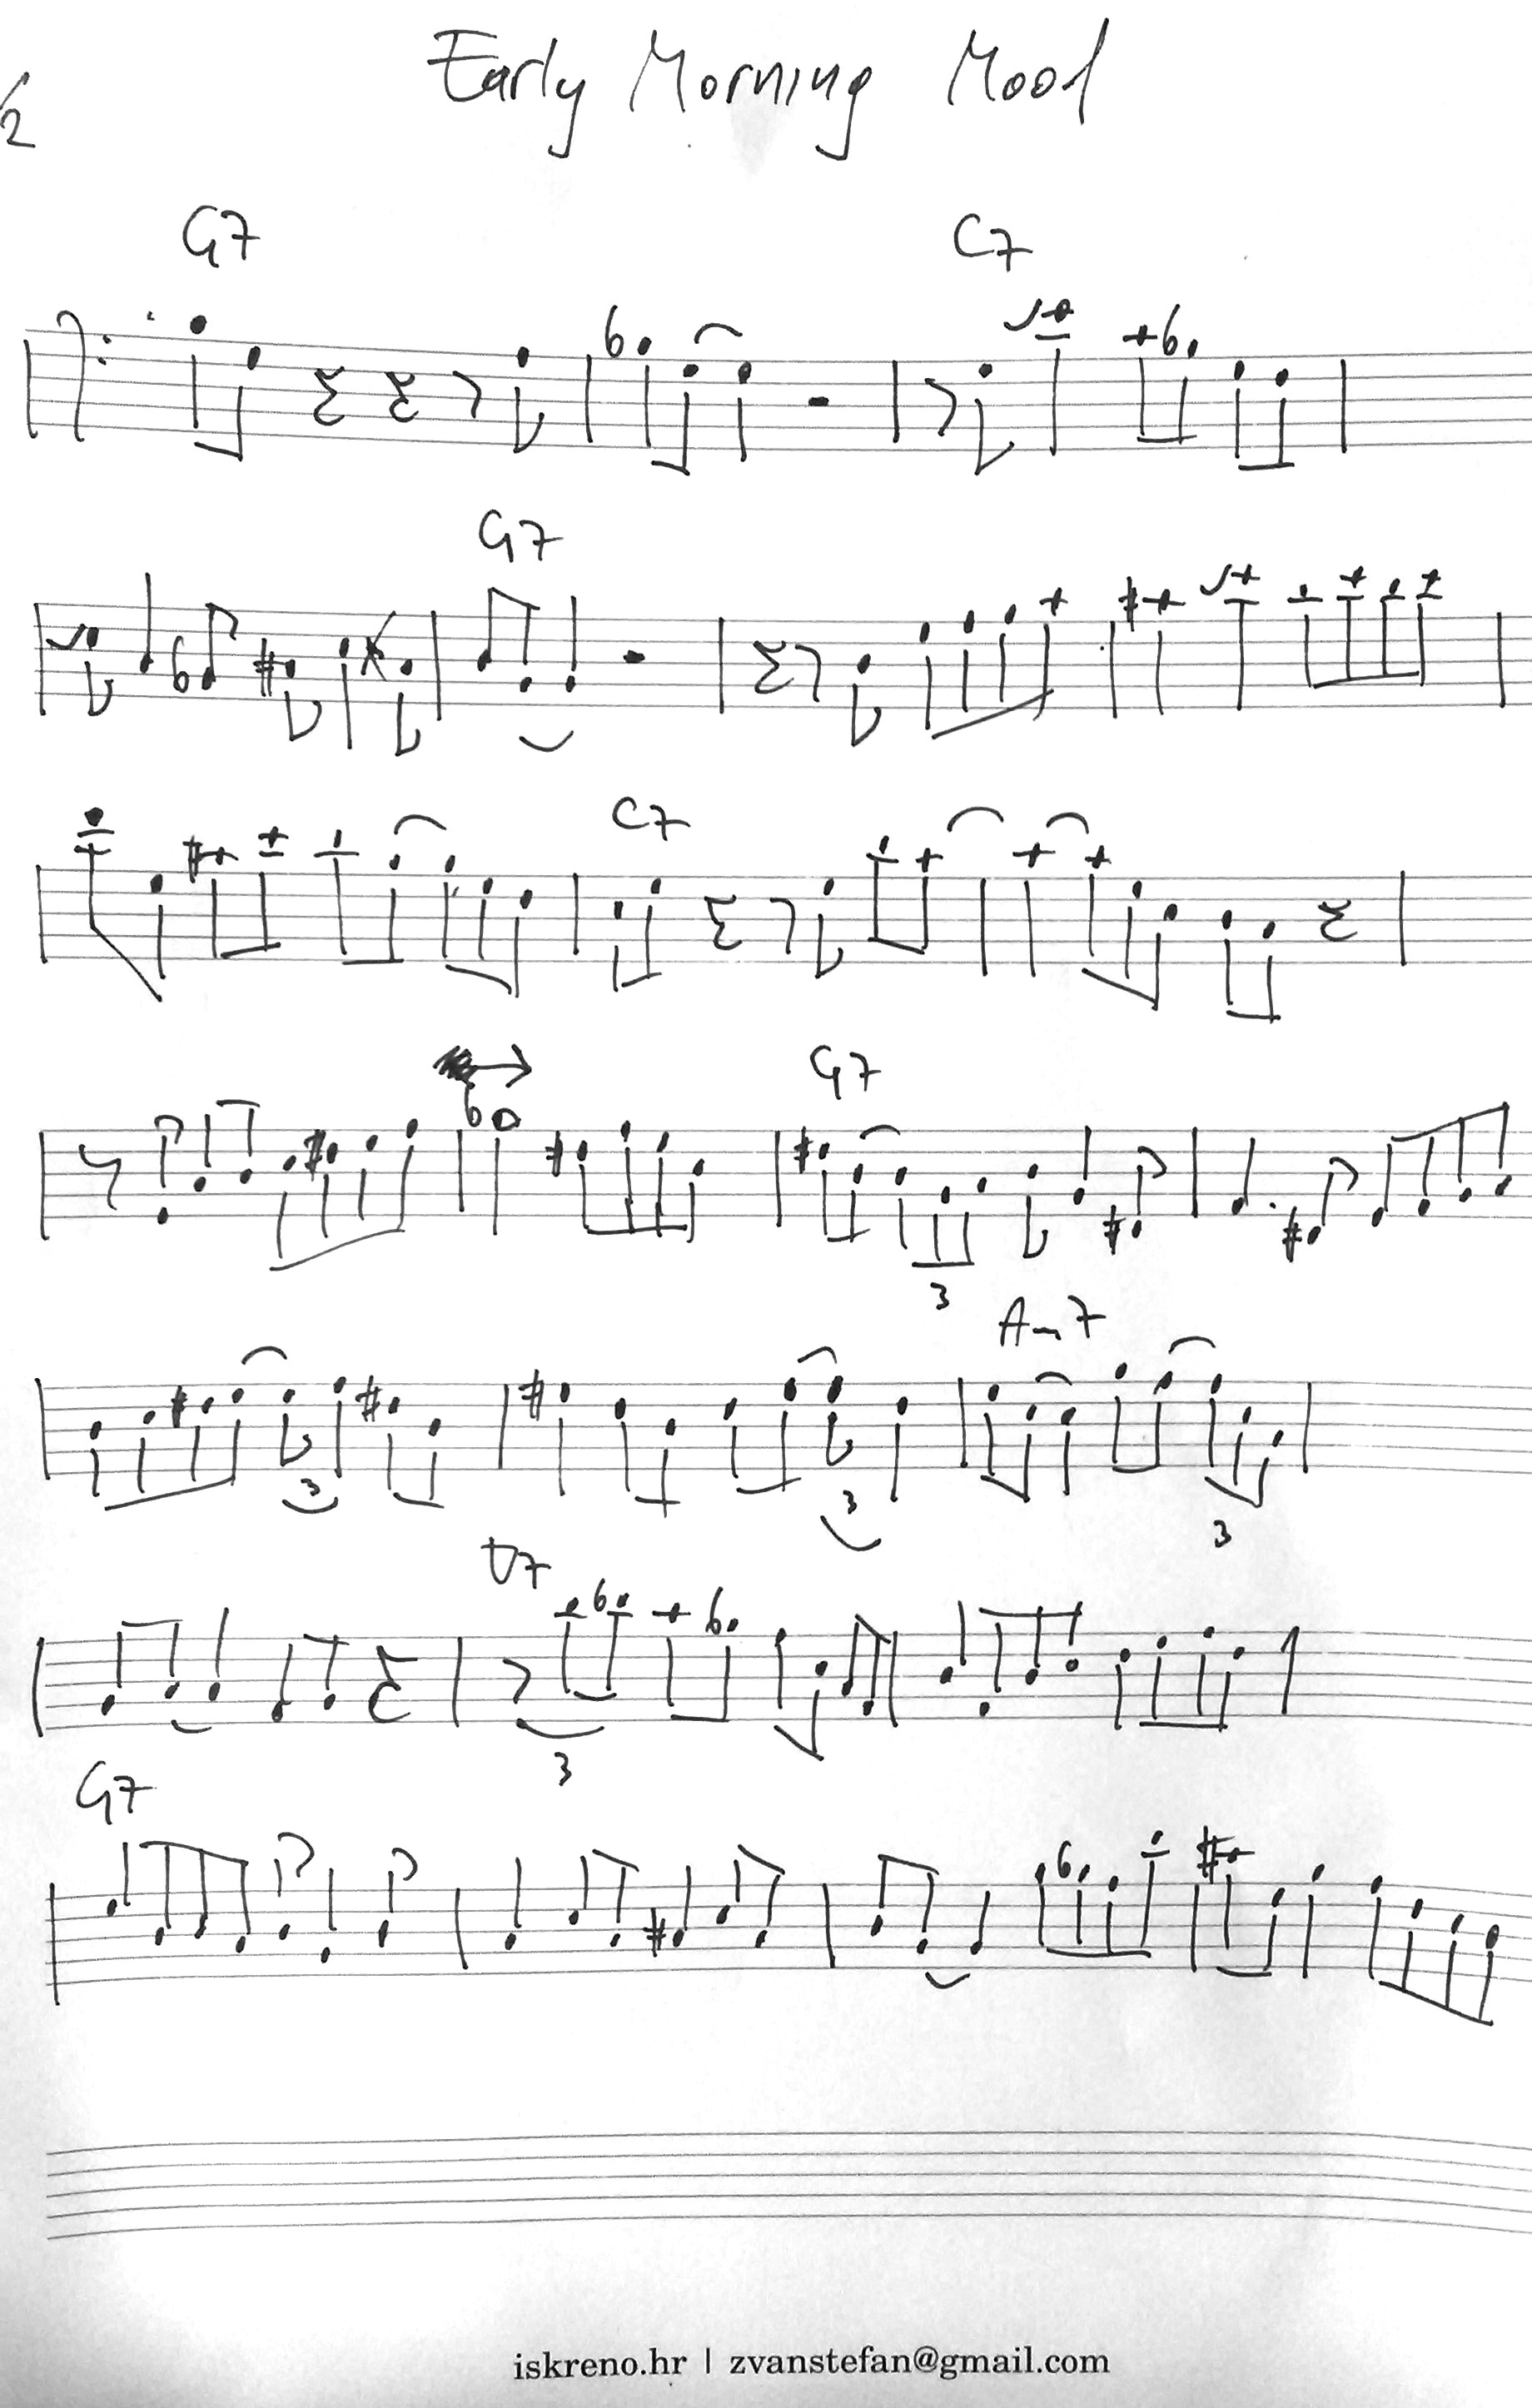 Early Morning Mood
2
G7 C7
G7
C7
G7
3
Am7
3 3 3
D7
3
G7
iskreno.hr | zvanstefan@gmail.com